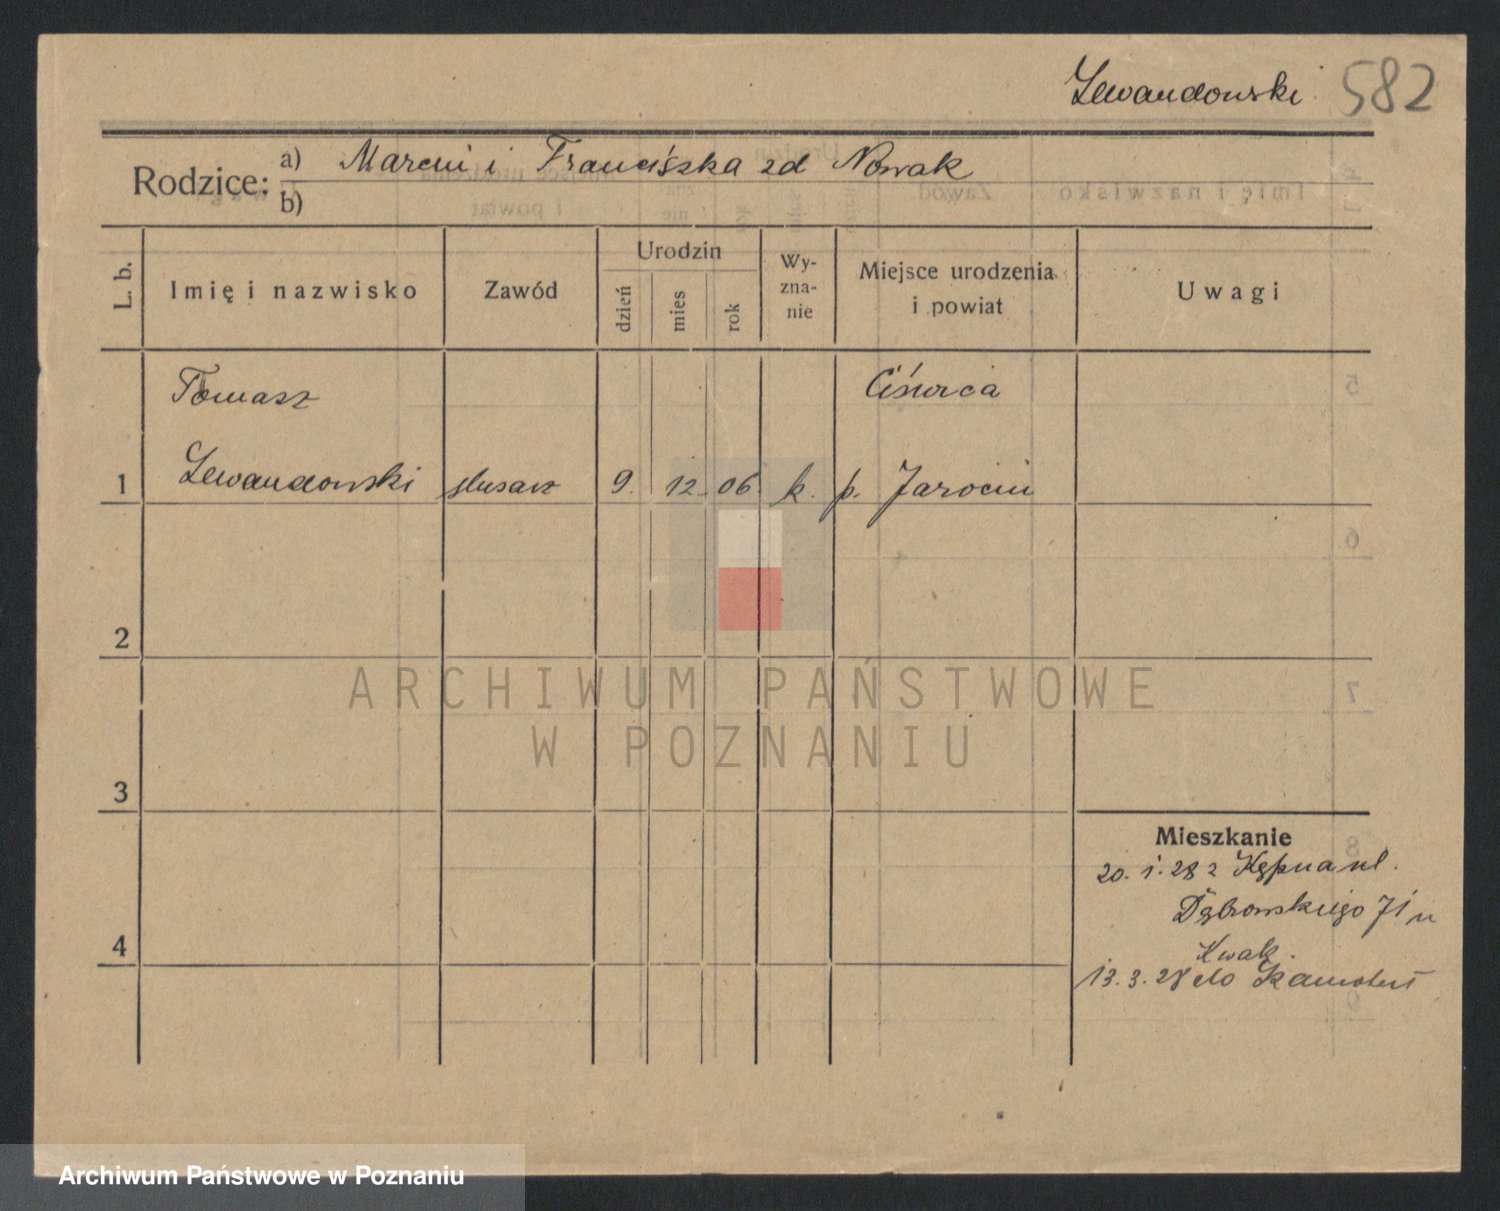 Lewandowski 582
Rodzice: a) Marcin i Franciszka zd Nowak
b)
L. b.
Imię i nazwisko
Zawód
Urodzin
dzień
mies
rok
Wy-
zna-
nie
Miejsce urodzenia
i powiat
Uwagi
Tomasz
Ciświca
1 Lewandowski ślusarz 9. 12. 06 k. p. Jarocin
2
3
4
Mieszkanie
20. 1. 28 z Kępna ul.
Dąbrowskiego 71 u
Kwak.
13. 3. 28 do
ARCHIWUM PAŃSTWOWE
W POZNANIU
Archiwum Państwowe w Poznaniu